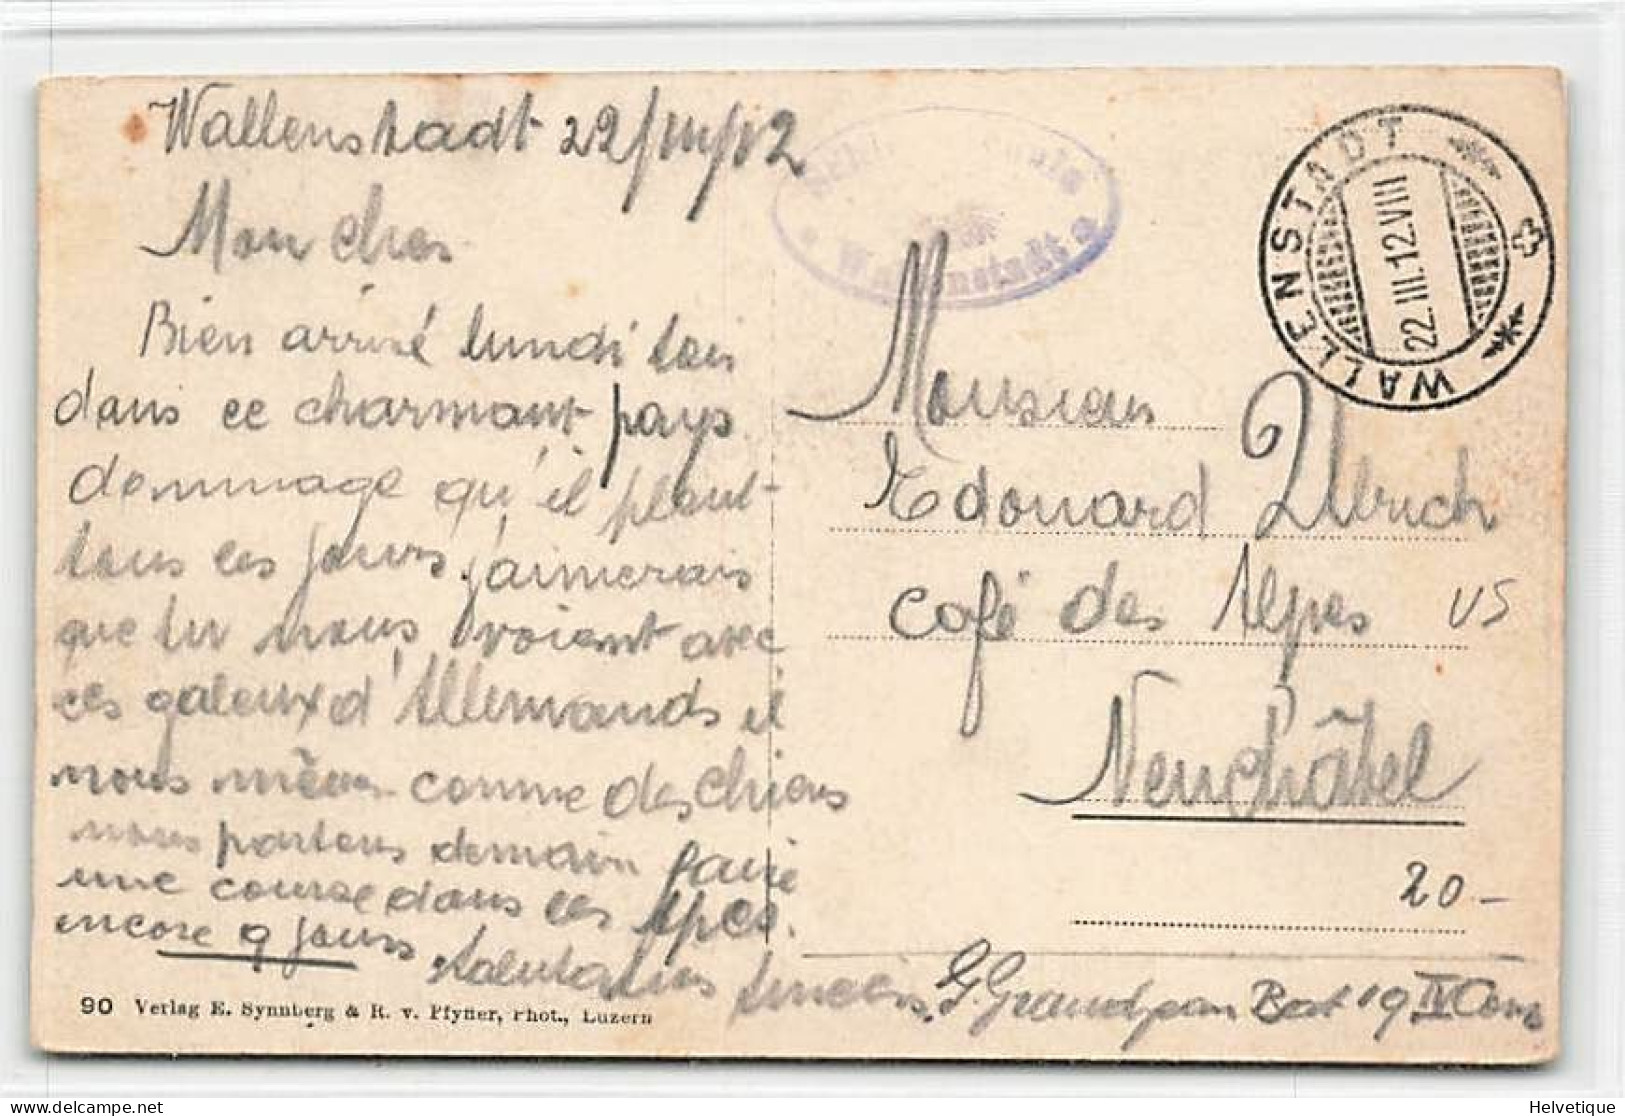 Wallenstadt 22/III/12
Mon cher
Bien arrivé lundi soir
dans ce charmant pays
dommage qu'il pleut
tous les jours, j'aimerais
que tu nous voient avec
ces galeux d'Allemands il
nous mène comme des chiens
nous partons demain faire
une course dans les Alpes.
encore 9 jours
Salutations sincères, G. Grandjean Bat 19 IV Com
90 Verlag E. Synnberg & R. v. Pfyffer, Phot., Luzern
Wallenstadt
WALLENSTADT
22.III.12.VIII
Monsieur
Edouard Ullrich
Café des Alpes
Neuchâtel
VS
20 -
Helvetique